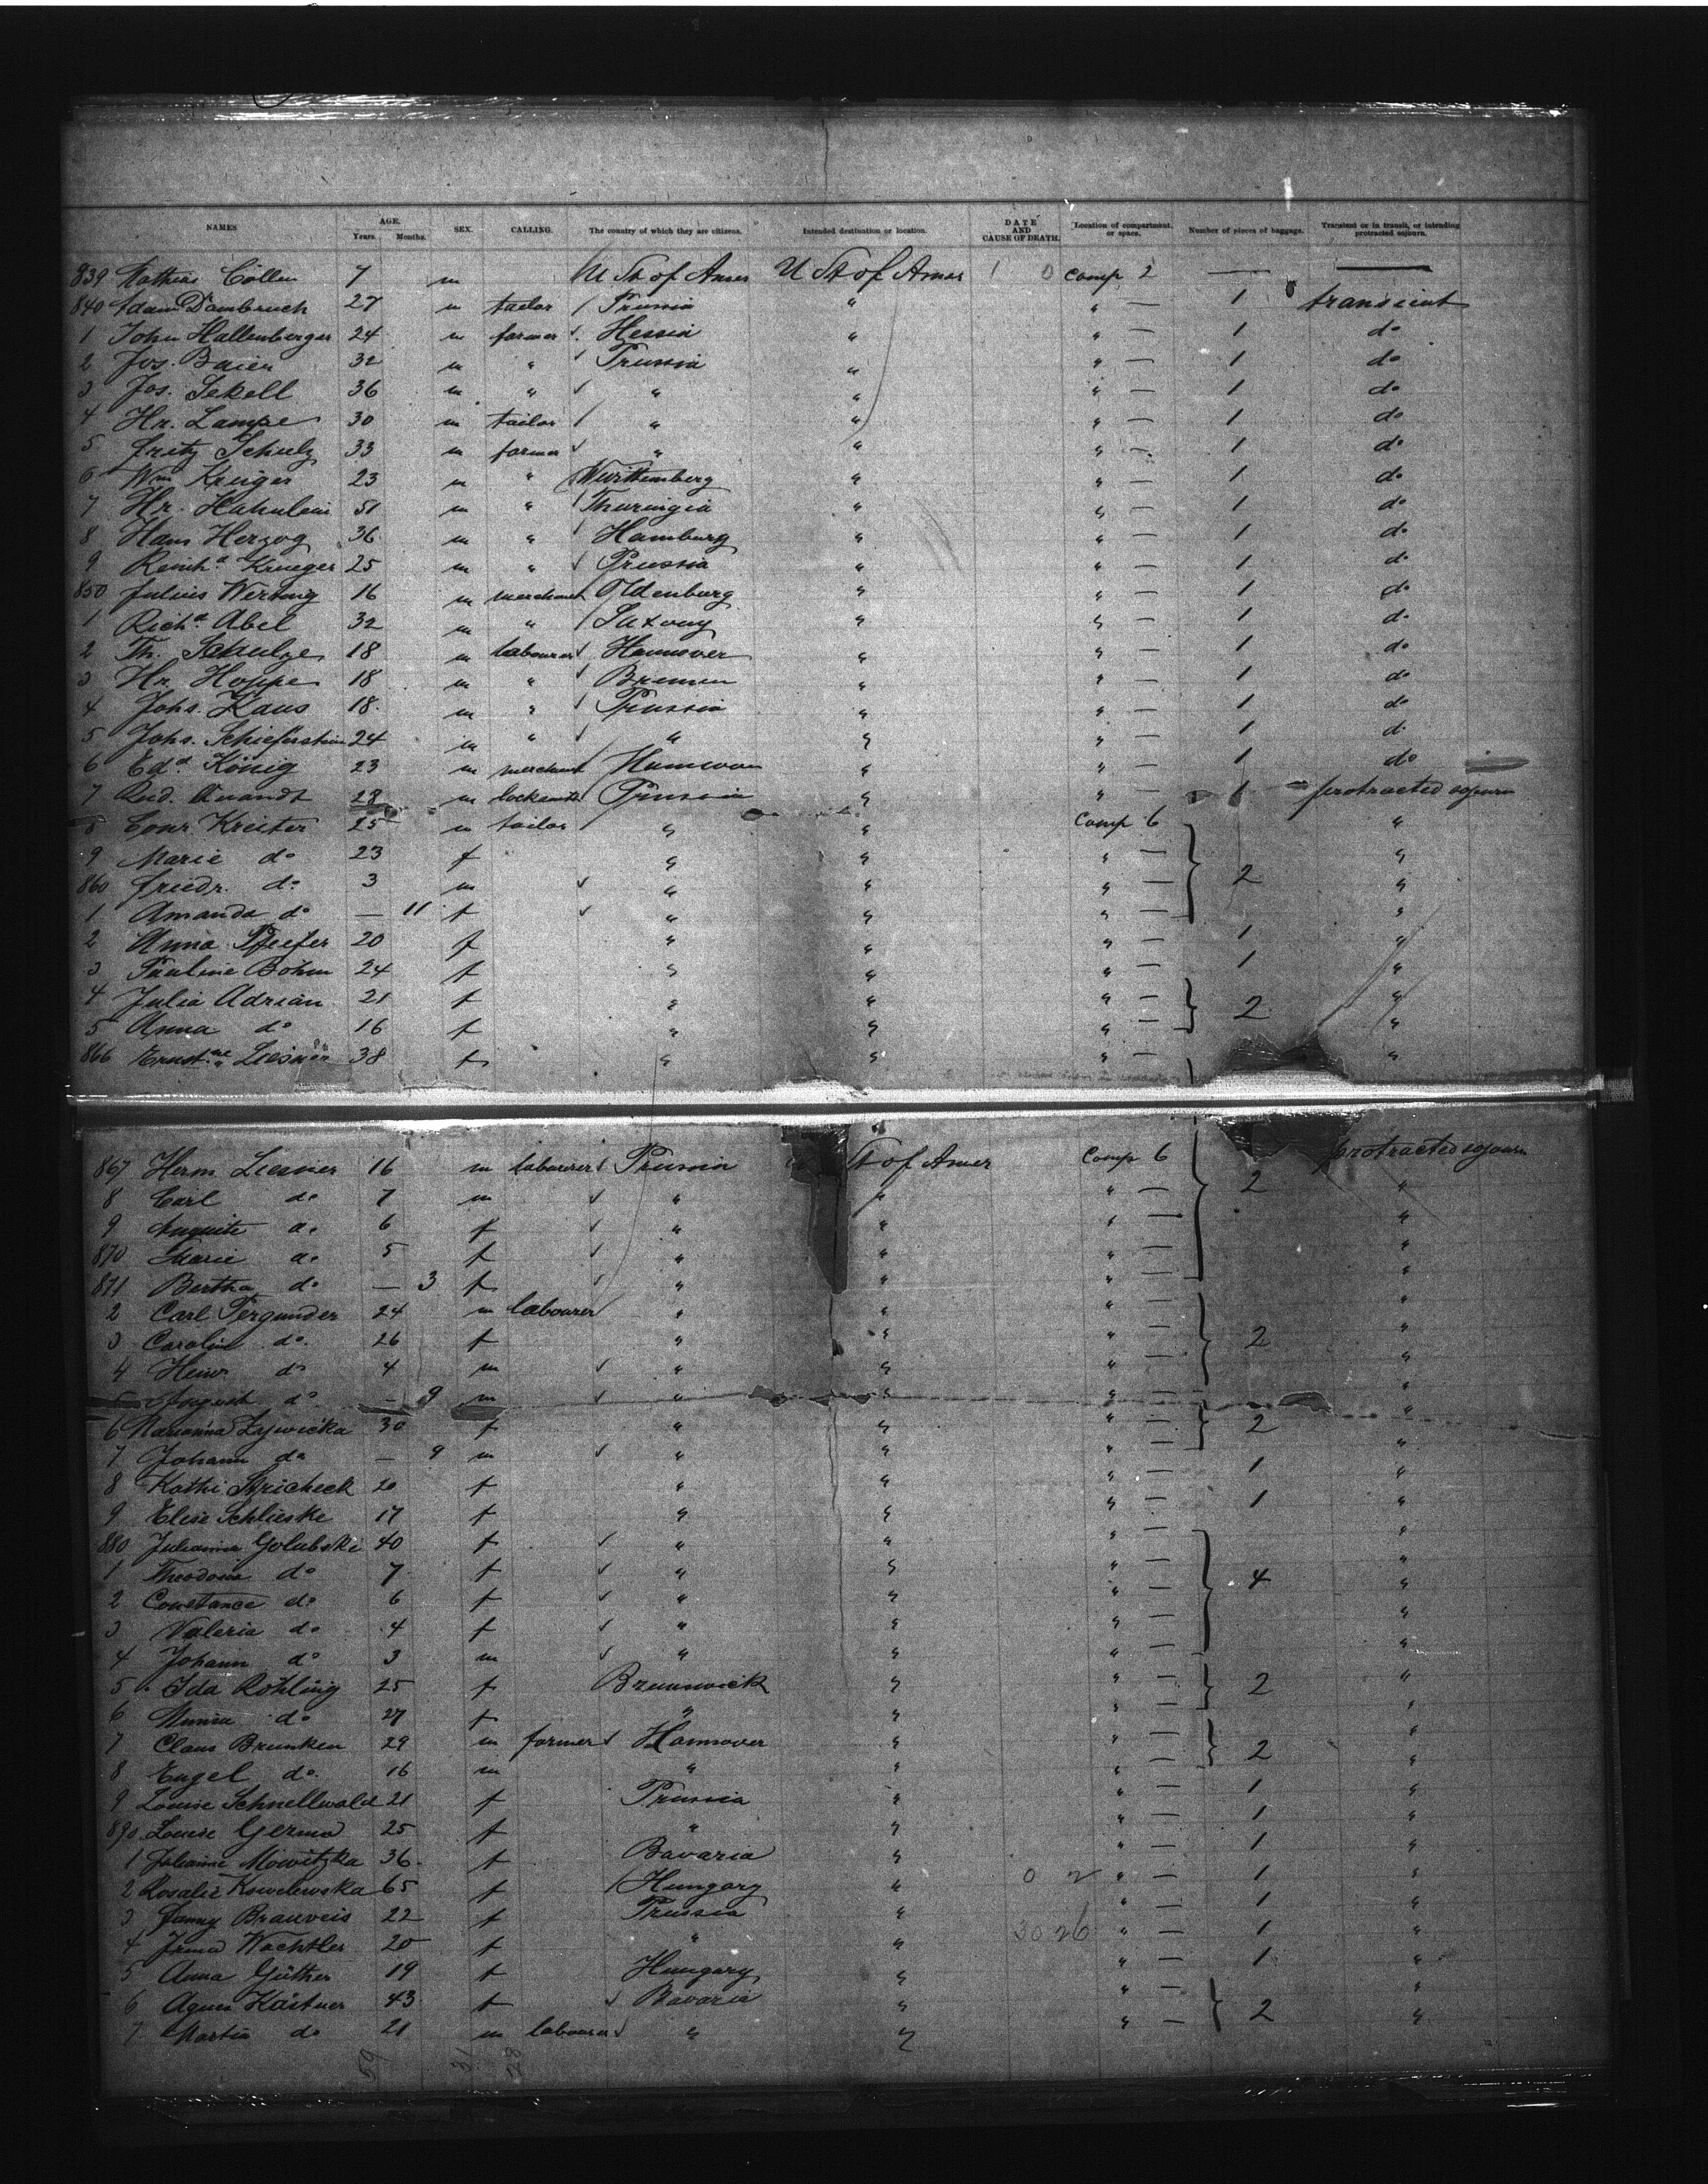 NAMES AGE. Years. Months. SEX. CALLING. The country of which they are citizens. Intended destination or location. DATE AND CAUSE OF DEATH. Location of compartment or space. Number of pieces of baggage. Transient or in transit, or intending protracted sojourn.
839 Mathias Cöllen 7 m U St of Amer U St of Amer 1 0 Comp 2 — —
840 Adam Dambruch 27 m tailor / Prussia " " — 1 transient
1 John Hallenberger 24 m farmer ✓ Hessia " " — 1 do
2 Jos. Baier 32 m " ✓ Prussia " " — 1 do
3 Jos. Sekell 36 m " ✓ " " " — 1 do
4 Hr. Lampe 30 m tailor / " " " — 1 do
5 Fritz Schulz 33 m farmer ✓ " " " — 1 do
6 Wm Krüger 23 m " / Württemberg " " — 1 do
7 Hr. Hahnlein 51 m " / Thuringia " " — 1 do
8 Hans Herzog 36 m " / Hamburg " " — 1 do
9 Reinhd Krueger 25 m " ✓ Prussia " " — 1 do
850 Julius Wertung 16 m merchant Oldenburg " " — 1 do
1 Richd Abel 32 m " / Saxony " " — 1 do
2 Th. Schulze 18 m labourer ✓ Hannover " " — 1 do
3 Hr. Hoppe 18 m " ✓ Bremen " " — 1 do
4 Johs. Kaus 18 m " ✓ Prussia " " — 1 do
5 Johs. Schieferstein 24 m " ✓ " " " — 1 do
6 Edd König 23 m merchant " " — 1 do
7 Rud. 28 m locksmith Prussia " " — 1 protracted sojourn
8 Conr. Kreiter 25 m tailor / " " Comp 6 "
9 Marie do 23 f " " " — 2 "
860 Friedr. do 3 m ✓ " " " — "
1 Amanda do — 11 f ✓ " " " — "
2 Anna Pfeifer 20 f " " " — 1 "
3 Pauline Böhm 24 f " " " — 1 "
4 Julia Adrian 21 f " " " — 2 "
5 Anna do 16 f " " " — "
866 Ernstne Liesner 38 f " " " — "
867 Herm Liesner 16 m labourer ✓ Prussia St of Amer Comp 6 protracted sojourn
8 Carl do 7 m ✓ " " " — 2 "
9 Auguste do 6 f ✓ " " " — "
870 Marie do 5 f ✓ " " " — "
871 Bertha do — 3 f ✓ " " " — "
2 Carl Pergunder 24 m labourer / " " " — "
3 Caroline do 26 f " " " — 2 "
4 Heinr do 4 m ✓ " " " — "
5 August do — 9 m ✓ " " " — "
6 Marianna Zajwicka 30 f " " " — 2 "
7 Johann do — 9 m ✓ " " " — "
8 Kathi 20 f " " " — 1 "
9 Elise Schlieske 17 f " " " — 1 "
880 Julianna Golubski 40 f ✓ " " " — "
1 Theodosia do 7 f ✓ " " " — 4 "
2 Constance do 6 f ✓ " " " — "
3 Valeria do 4 f ✓ " " " — "
4 Johann do 3 m ✓ " " " — "
5 Ida Röhling 25 f Brunswick " " — 2 "
6 Minna do 27 f " " " — "
7 Claus Brunken 29 m farmer ✓ Hannover " " — 2 "
8 Engel do 16 m " " " — "
9 Louise Schnellwald 21 f Prussia " " — 1 "
890 Louise 25 f " " " — 1 "
1 Julianne Mowitzka 36 f Bavaria " " — 1 "
2 Rosalie Kowelewska 65 f / Hungary " 0 2 " — 1 "
3 Fanny Brauveis 22 f Prussia " " — 1 "
4 Irma Wachtler 20 f " " 30 26 " — 1 "
5 Anna Güther 19 f Hungary " " — 1 "
6 Agnes Kästner 43 f ✓ Bavaria " " — 2 "
7 Martin do 21 m labourer ✓ " " " — "
59 31 28